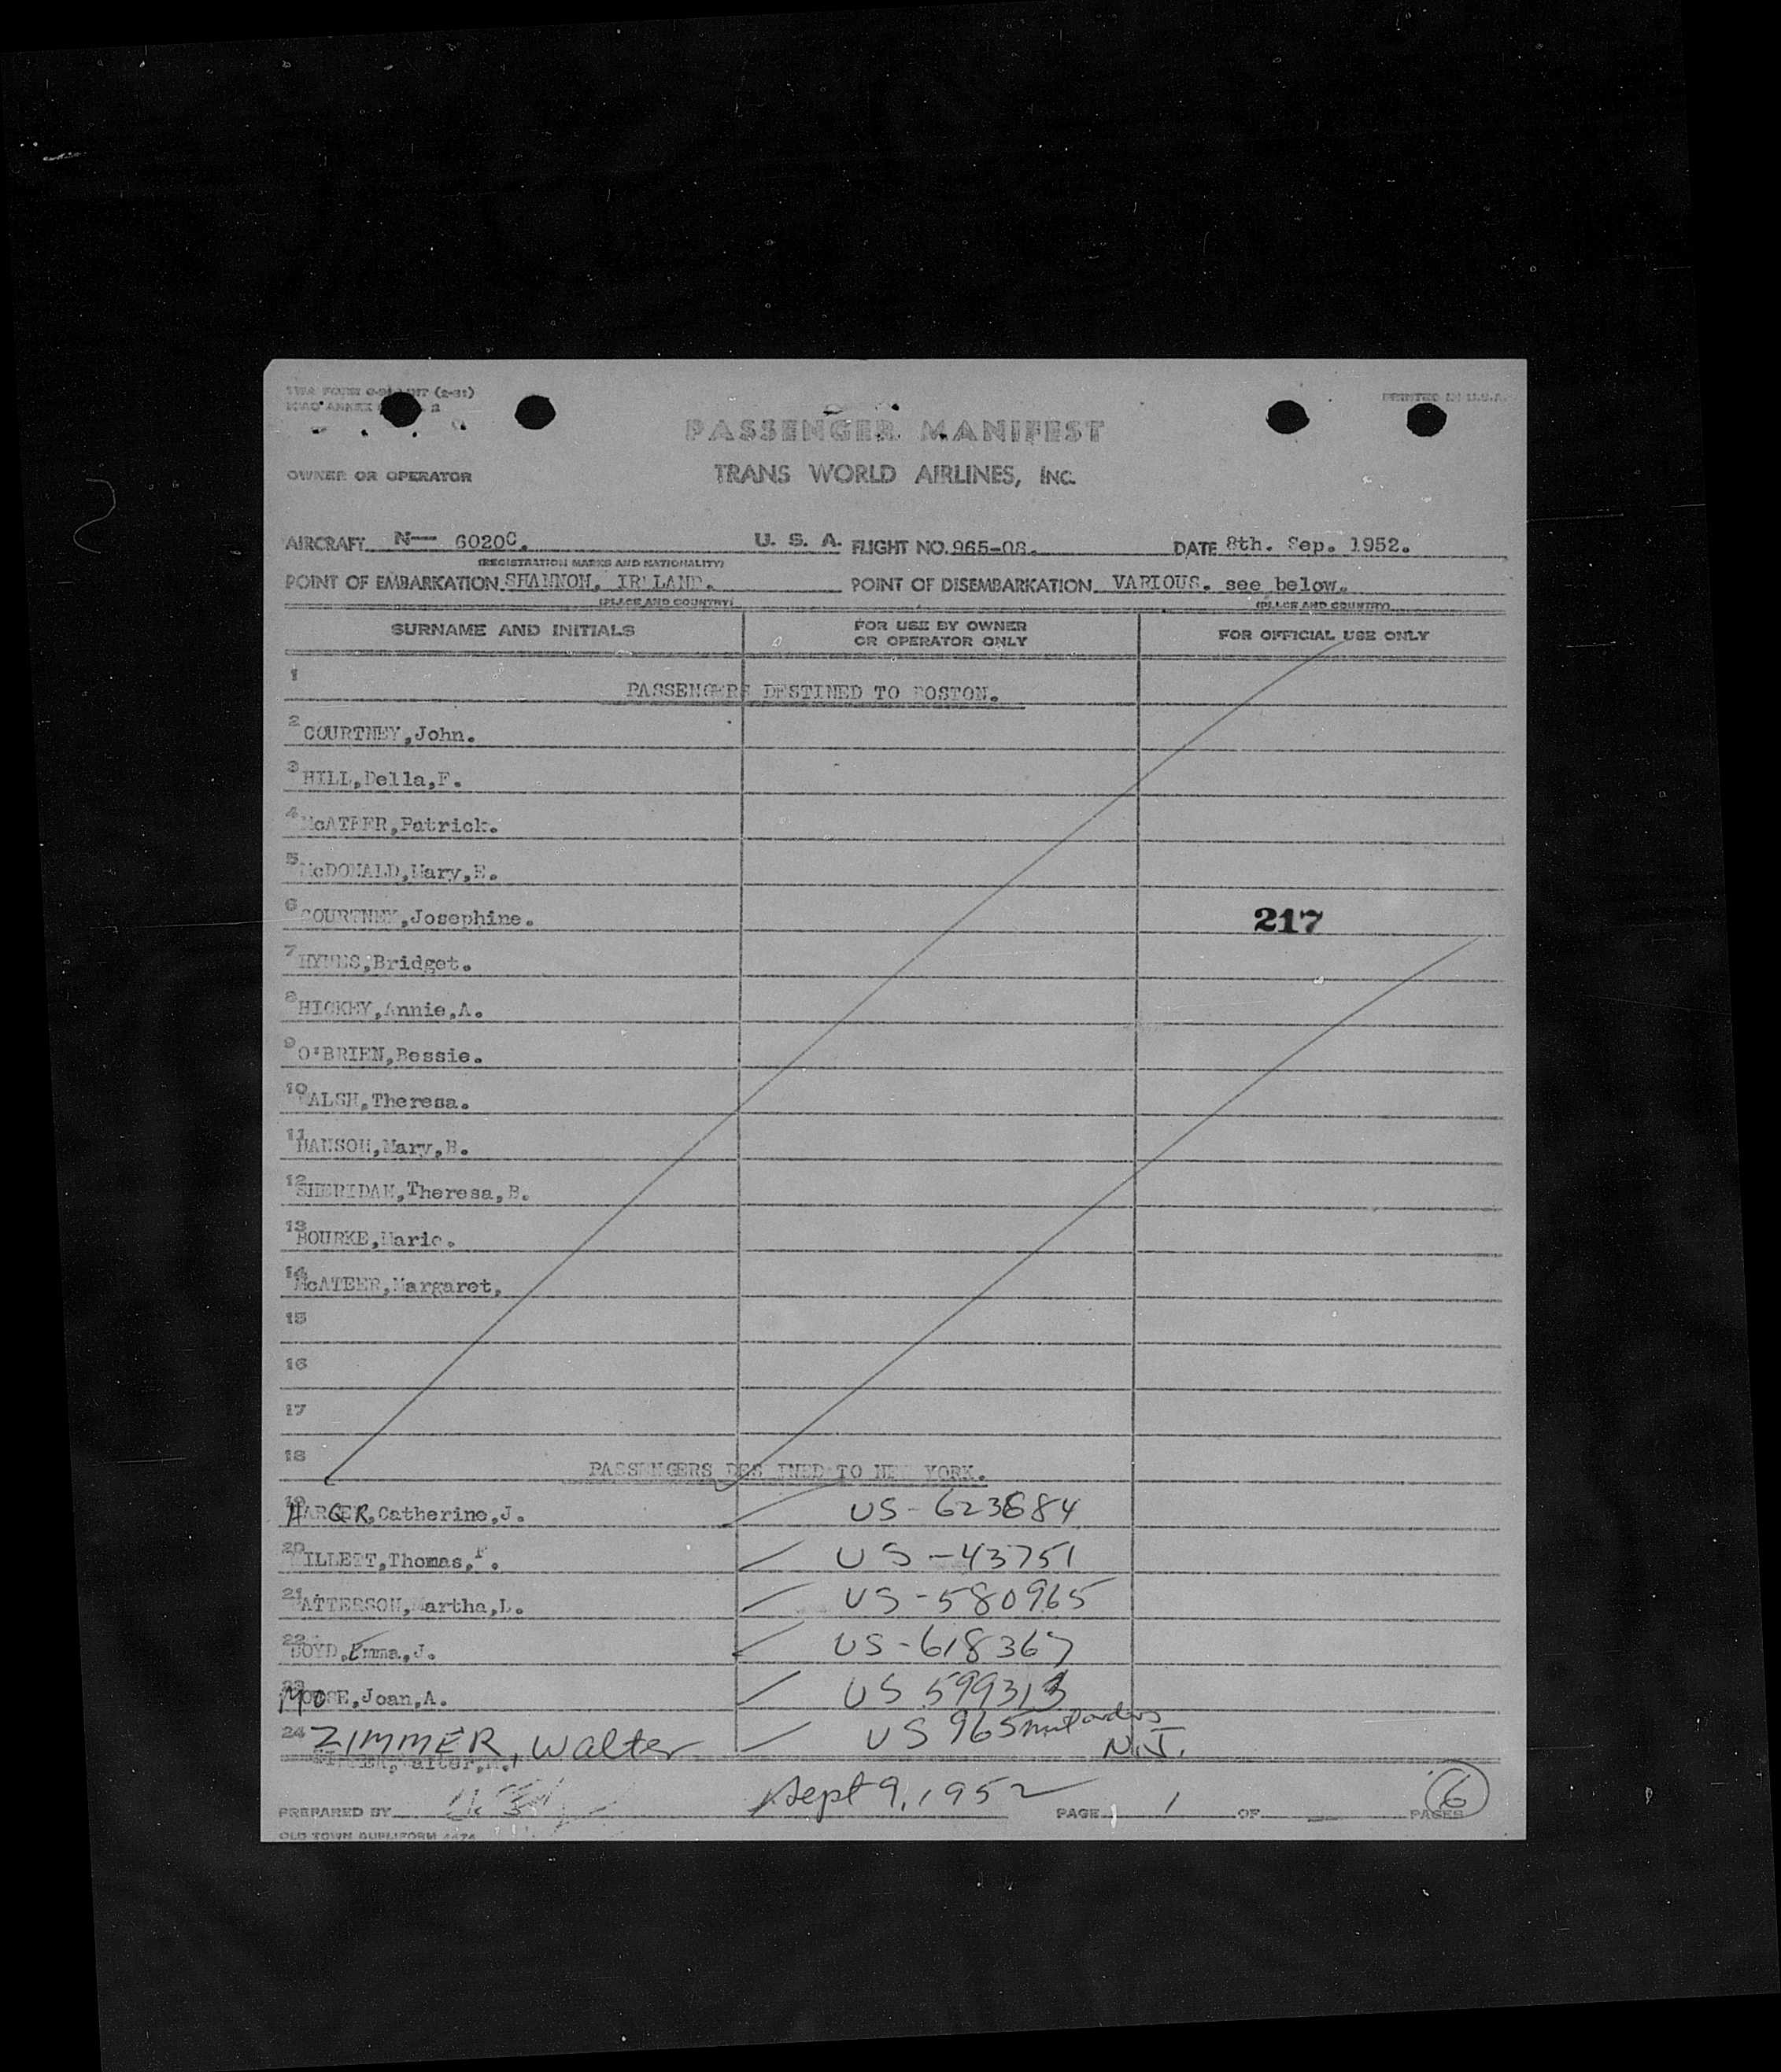 PRINTED IN U.S.A.
PASSENGER MANIFEST
OWNER OR OPERATOR TRANS WORLD AIRLINES, INC.
AIRCRAFT N— 6020C. U. S. A. FLIGHT NO. 965-08. DATE 8th. Sep. 1952.
(REGISTRATION MARKS AND NATIONALITY)
POINT OF EMBARKATION SHANNON, IRELAND. POINT OF DISEMBARKATION VARIOUS. see below.
(PLACE AND COUNTRY) (PLACE AND COUNTRY)
SURNAME AND INITIALS FOR USE BY OWNER OR OPERATOR ONLY FOR OFFICIAL USE ONLY
1 PASSENGERS DESTINED TO BOSTON.
2 COURTNEY,John.
3 HILL,Della,F.
4 McATEER,Patrick.
5 McDONALD,Mary,E.
6 COURTNEY,Josephine. 217
7 HYNES,Bridget.
8 HICKEY,Annie,A.
9 O'BRIEN,Bessie.
10 WALSH,Theresa.
11 HANSON,Mary,B.
12 SHERIDAN,Theresa,B.
13 BOURKE,Marie.
14 McATEER,Margaret,
15
16
17
18 PASSENGERS DESTINED TO NEW YORK.
19 Catherine,J. US-623684
20 Thomas,F. US-43751
21 PATTERSON,Martha,L. US-580965
22 BOYD,Emma,J. US-618367
23 Joan,A. US 599313
24 ZIMMER, Walter US 965 N.J.
PREPARED BY Sept 9, 1952 PAGE 1 OF PAGES 6
OLD TOWN DUPLIFORM